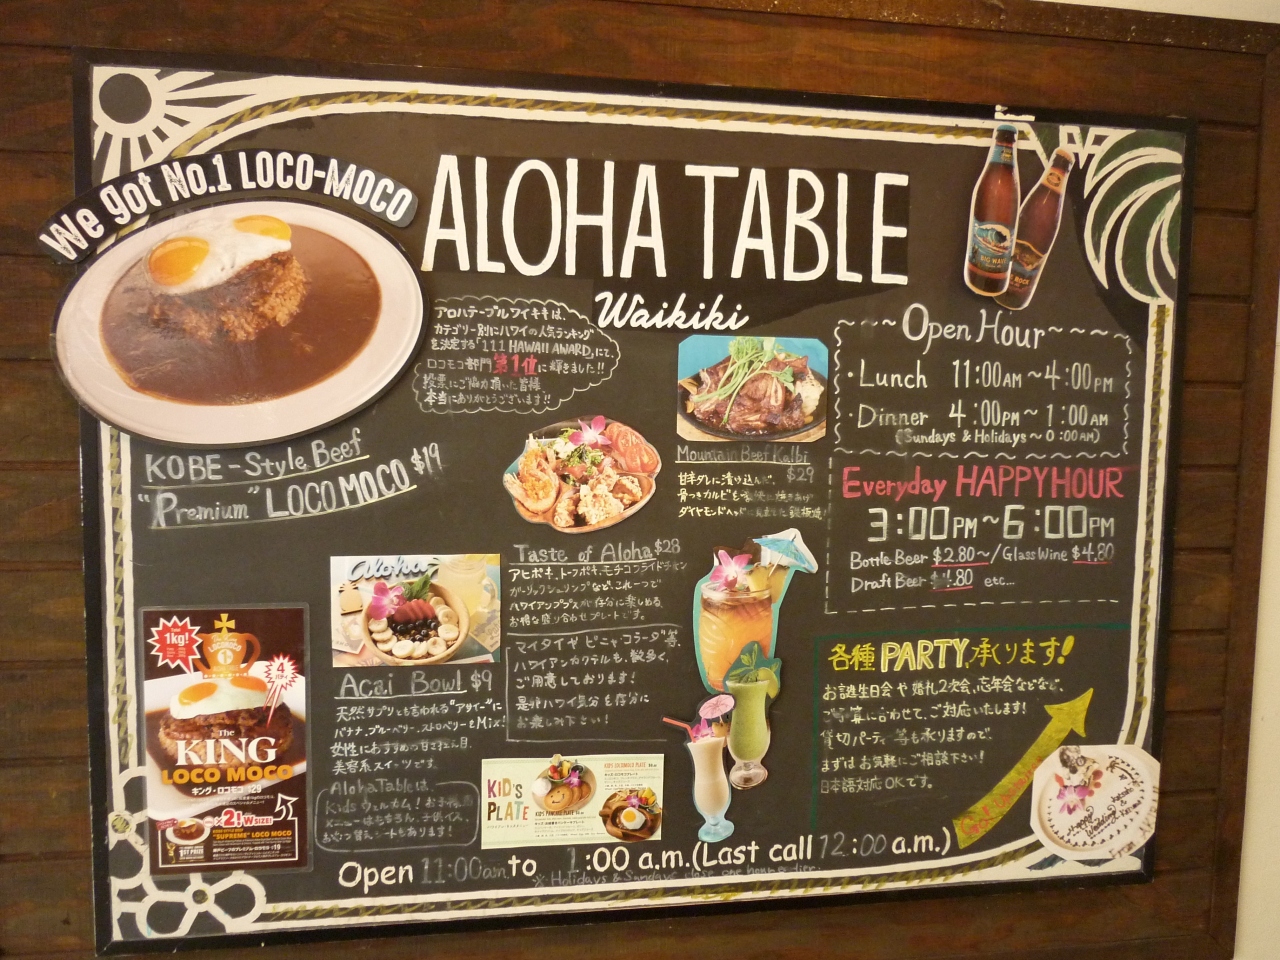 We got No.1 LOCO-MOCO
ALOHA TABLE
Waikiki
アロハテーブルワイキキは、
カテゴリー別にハワイの人気ランキング
を決定する「111 HAWAII AWARD」にて、
ロコモコ部門第1位に輝きました!!
投票にご協力頂いた皆様
本当にありがとうございます!!
KOBE-Style Beef
"Premium" LOCO MOCO $19
Mountain Beef Kalbi
$29
甘辛ダレに漬け込んだ、
骨つきカルビを
ダイヤモンドヘッドに
Open Hour
・Lunch 11:00AM~4:00PM
・Dinner 4:00PM~1:00AM
(Sundays & Holidays~0:00AM)
Everyday HAPPY HOUR
3:00PM~6:00PM
Bottle Beer $2.80~/Glass Wine $4.80
Draft Beer $4.80 etc...
Taste of Aloha $28
アヒポキ、トーフポキ、モチコフライドチキン
ガーリックシュリンプなど、これ一つで
ハワイアンププスが存分に楽しめる、
お得な盛り合わせプレートです。
マイタイやピニャ・コラーダ等、
ハワイアンカクテルも、数多く、
ご用意しております!
是非ハワイ気分を存分に
お楽しみ下さい!
Aloha
Acai Bowl $9
天然サプリとも言われる"アサイー"に
バナナ、ブルーベリー、ストロベリーをMix!
女性におすすめの
美容系スイーツです。
Aloha Tableは、
Kidsウェルカム! お子様用
メニューはもちろん、子供イス、
おむつ替えシートもあります!
各種PARTY承ります!
お誕生日会や婚礼2次会、忘年会などなど、
ご予算に合わせて、ご対応いたします!
貸切パーティー等も承りますので、
まずはお気軽にご相談下さい!
日本語対応OKです。
Total
1kg!
4
The
KING
LOCO MOCO
キング・ロコモコ $29
×2! W SIZE!
"SUPREME" LOCO MOCO
KID'S
PLATE
KID'S LOCOMOCO PLATE
KID'S PANCAKE PLATE
Happy
Wedding
From
Open 11:00am to 1:00 a.m.(Last call 12:00 a.m.)
※ Holidays & Sundays close one hour